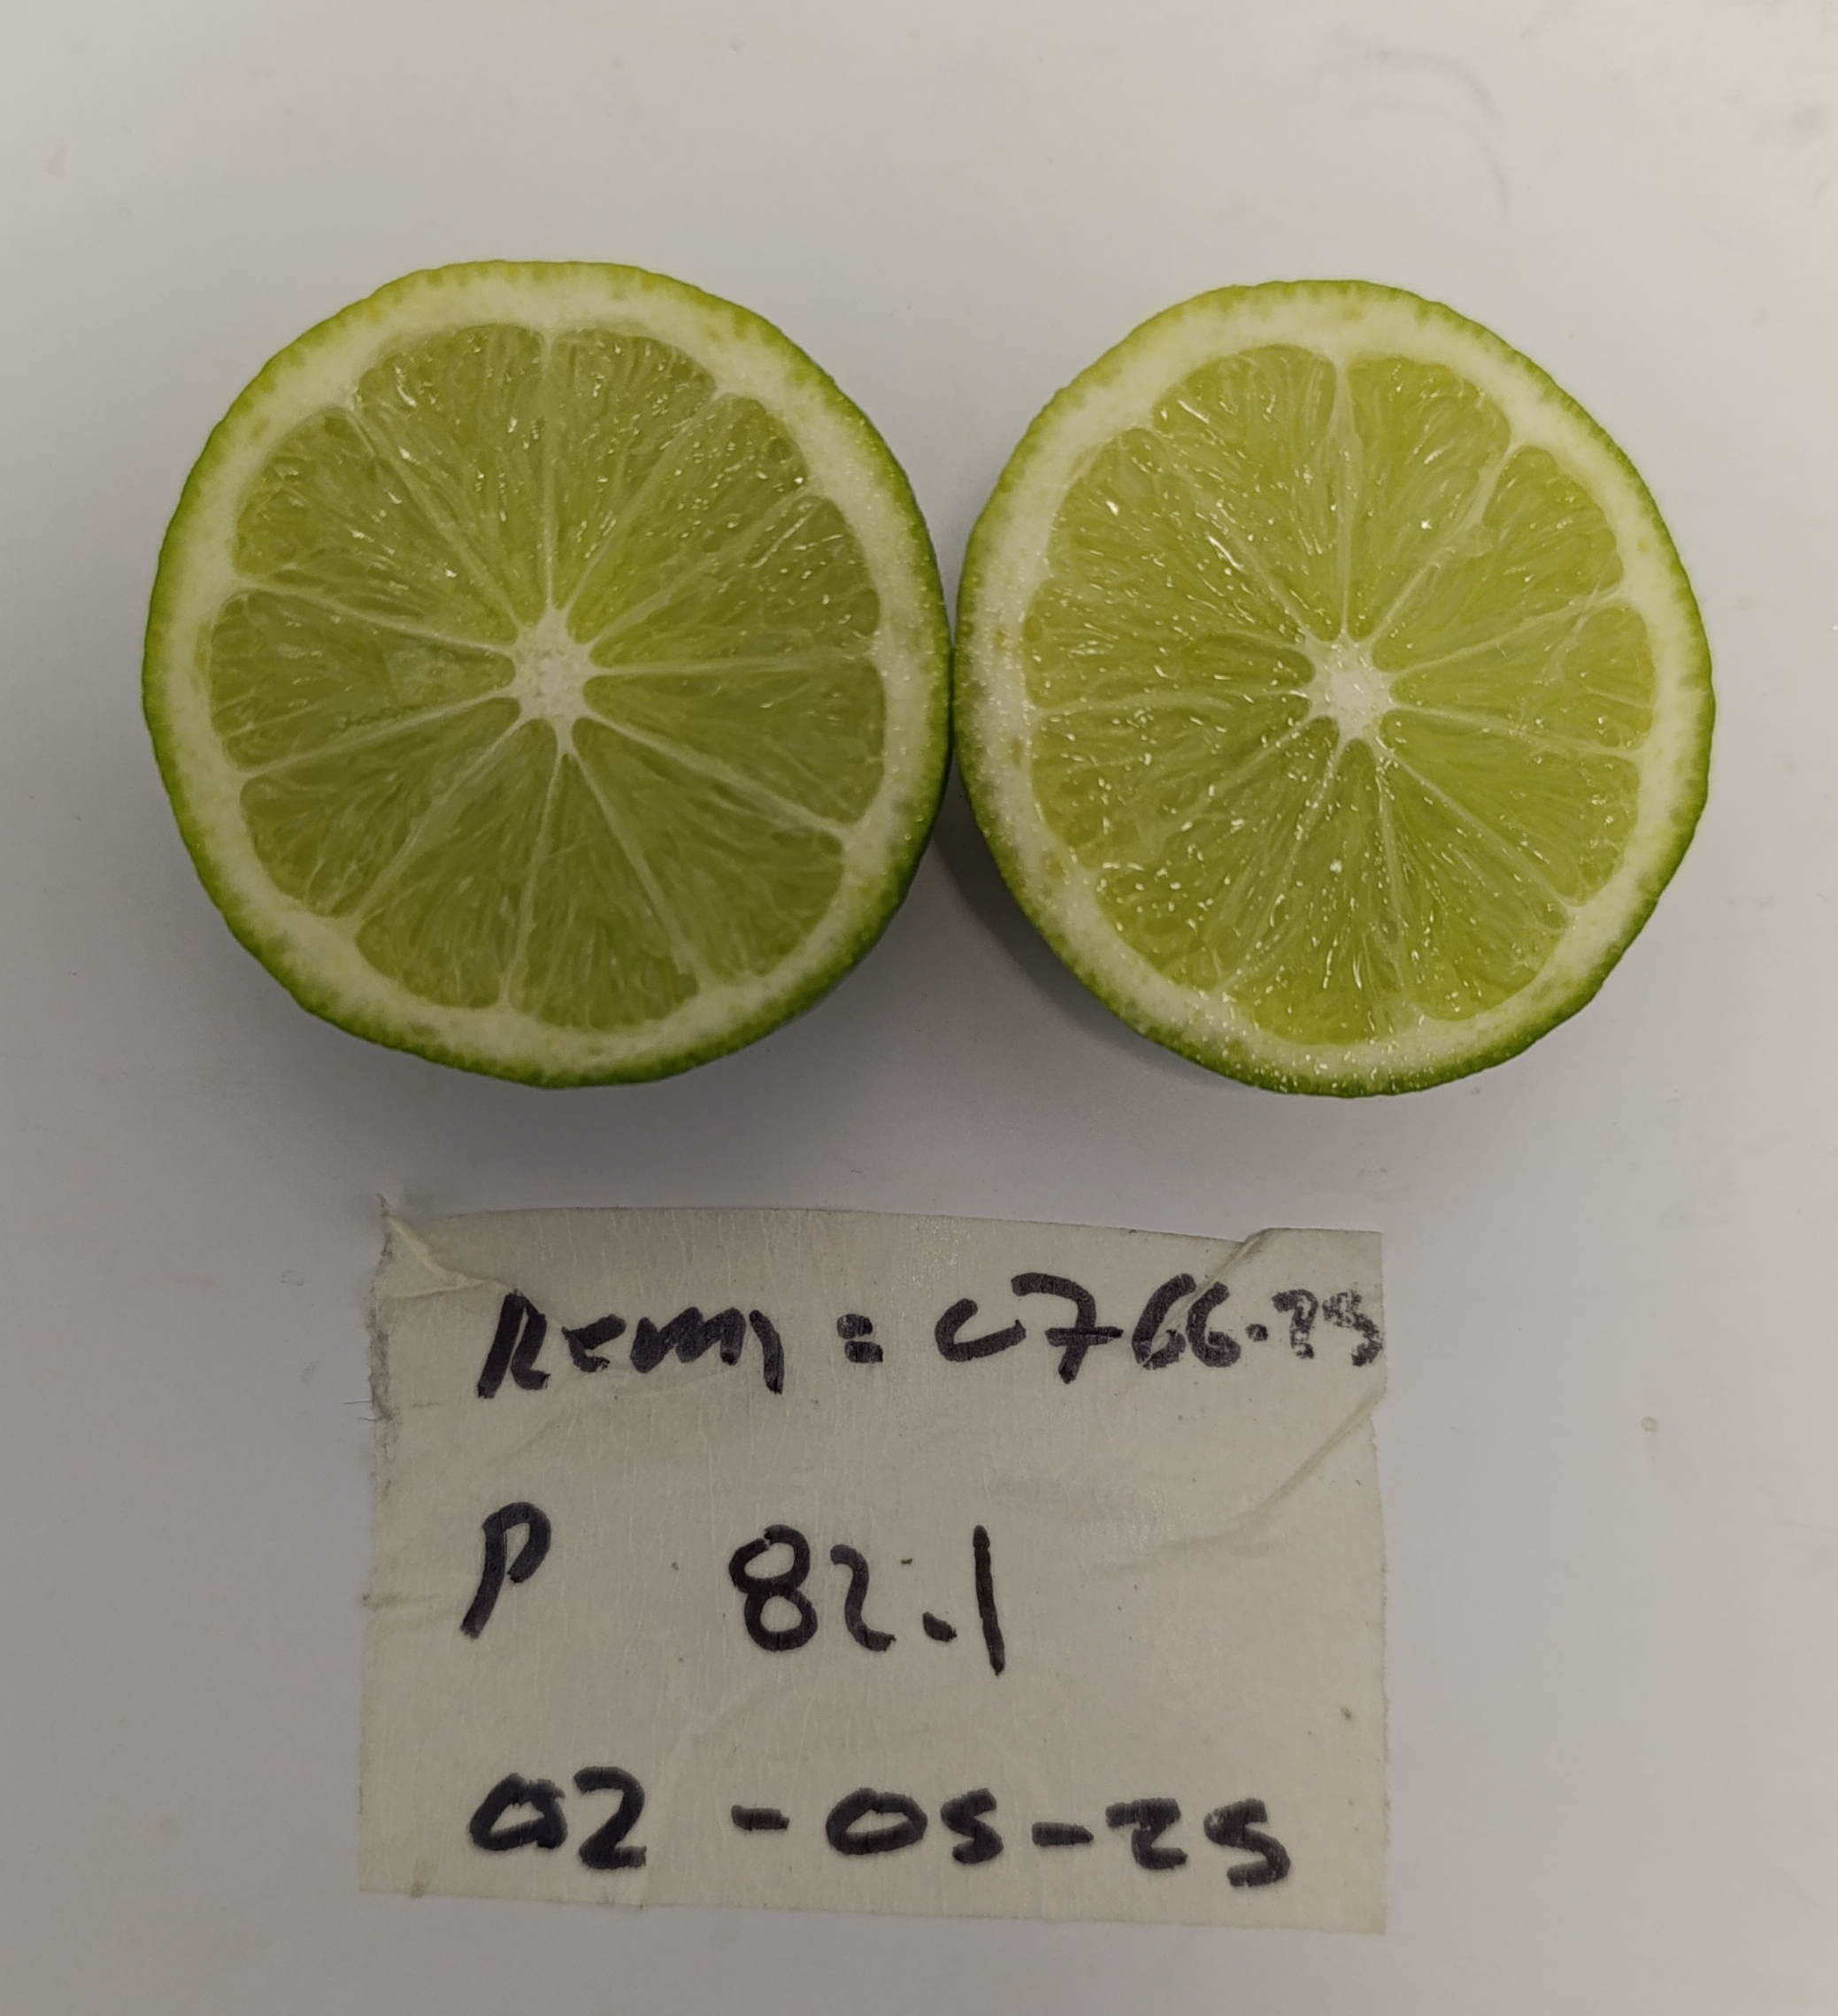 Remi = C766-25
P 82.1
02-05-25